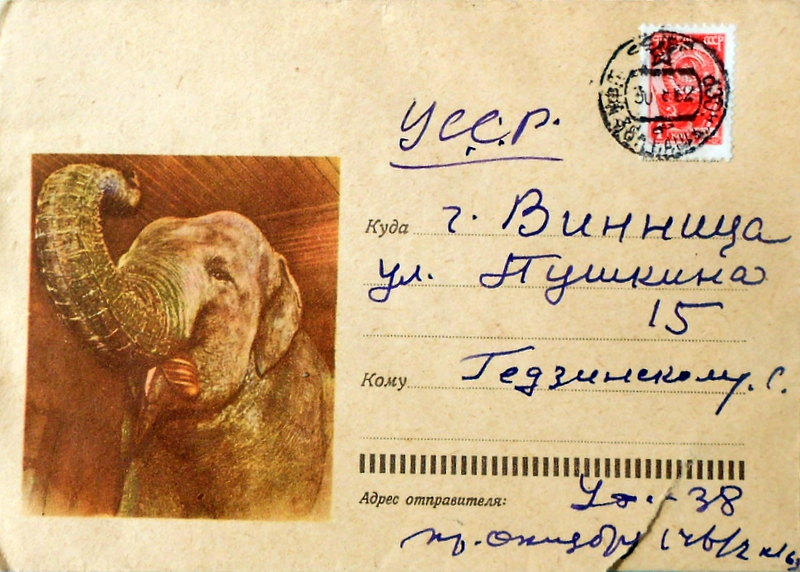 СССР
УССР.
Куда г. Винница
ул. Пушкина
15
Кому Гедзинскому. С.
Адрес отправителя: 38
пр. 146/2